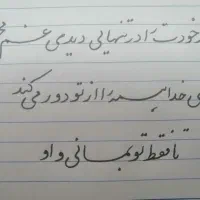 خودت را در تنهایی دیدی غم
خدا همه را از تو دور می کند
تا فقط تو بمانی و او